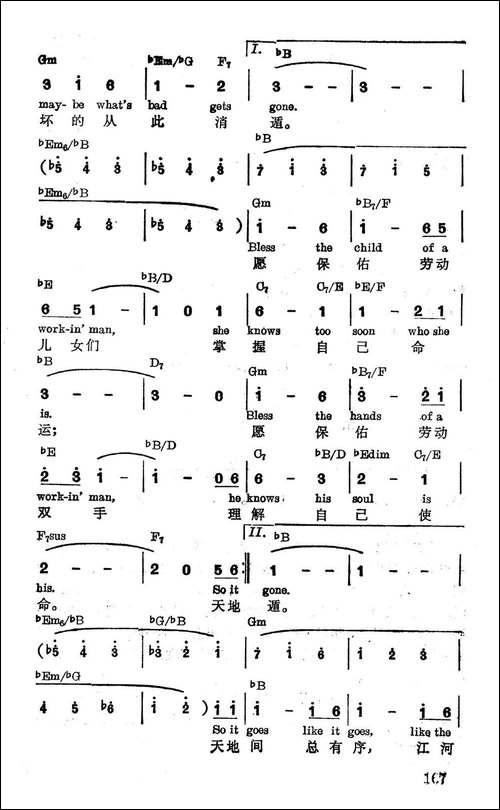 Gm ♭Em/♭G F7 I. ♭B
3 1̇ 6 | 1 - 2 | 3 - - | 3 - - |
may- be what's bad gets gone.
坏 的 从 此 消 遁。
♭Em6/♭B ♭B
(♭5̇ 4̇ 3̇ | ♭5̇ 4̇ 3̇ | 7̇ 1̇ 3̇ | 7̇ 1̇ 5̇ |
♭Em6/♭B Gm ♭B7/F
♭5̇ 4̇ 3̇ | ♭5̇ 4̇ 3̇ ) | 1̇ - 6 | 1̇ - 6 5 |
Bless the child of a
愿 保 佑 劳动
♭E ♭B/D C7 C7/E ♭E/F
6 5 1 - | 1 0 1 | 6 - 1 | 1 - 2 1 |
work-in' man, she knows too soon who she
儿 女们 掌 握 自 己 命
♭B D7 Gm ♭B7/F
3 - - | 3 - 0 | 1̇ - 6 | 3̇ - 2̇ 1̇ |
is. Bless the hands of a
运; 愿 保 佑 劳动
♭E ♭B/D C7 ♭B/D ♭Edim C7/E
2̇ 3̇ 1̇ - | 1̇ - 0 6 | 6 - 3 | 2 - 1 |
work-in' man, he knows his soul is
双 手 理解 自 己 使
F7sus F7 II. ♭B
2 - - | 2 0 5 6 :‖ 1 - - | 1 - - |
his. So it gone.
命。 天地 遁。
♭Em6/♭B ♭G/♭B Gm
(♭5̇ 4̇ 3̇ | ♭3̇ 2̇ 1̇ | 7 1̇ 6 | 1̇ 2̇ 3̇ |
♭Em/♭G ♭B
4 5 ♭6 | 1̇ 2̇ ) 1̇ 1̇ | 1̇ - 1̇ 6 | 1̇ - 1̇ 6 |
So it goes like it goes, like the
天地 间 总 有 序, 江河
167